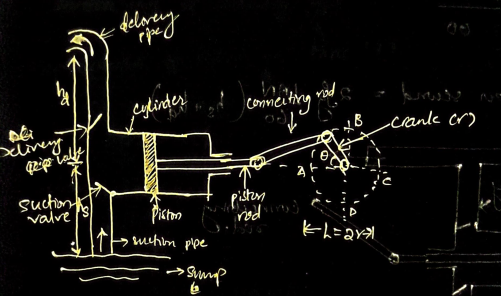 delivery
pipe
hd
cylinder
connecting rod
B
crank (r)
Delivery
valve
θ
A
C
suction
valve
hs
piston
piston
rod
D
L = 2r
suction pipe
sump